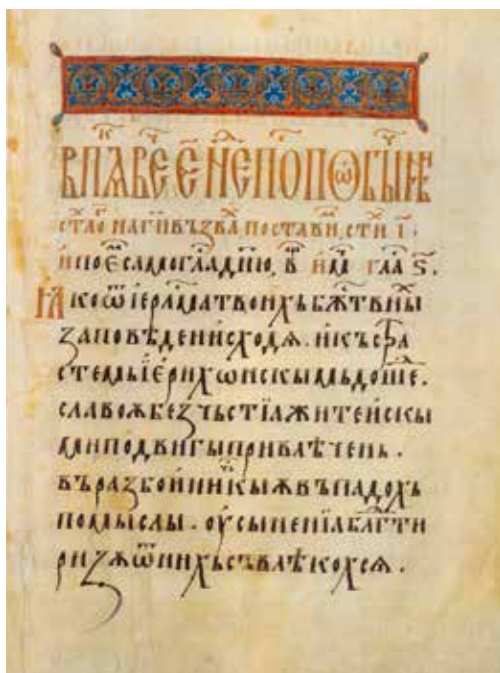 стл҃о наг҃и възва҃ постави, сти҃ і҃.
и пое҃ самогла днію, в҃ и҃м҃ гла҃ ѕ҃.
Ꙗко ѿ іер҃лима твоихъ бж҃твны҃
заповѣдеи исходѧ. и къ сфра
стемь іерихѡнскымь дошѐ.
славоѫ безчьстїа житеискы
ми подвигы привлѣчень.
въ разбоиникыѫ въпадохъ
помыслы. оусыненїа бл҃гти
ризѫ ѿ нихъ съвлѣкохсѧ.